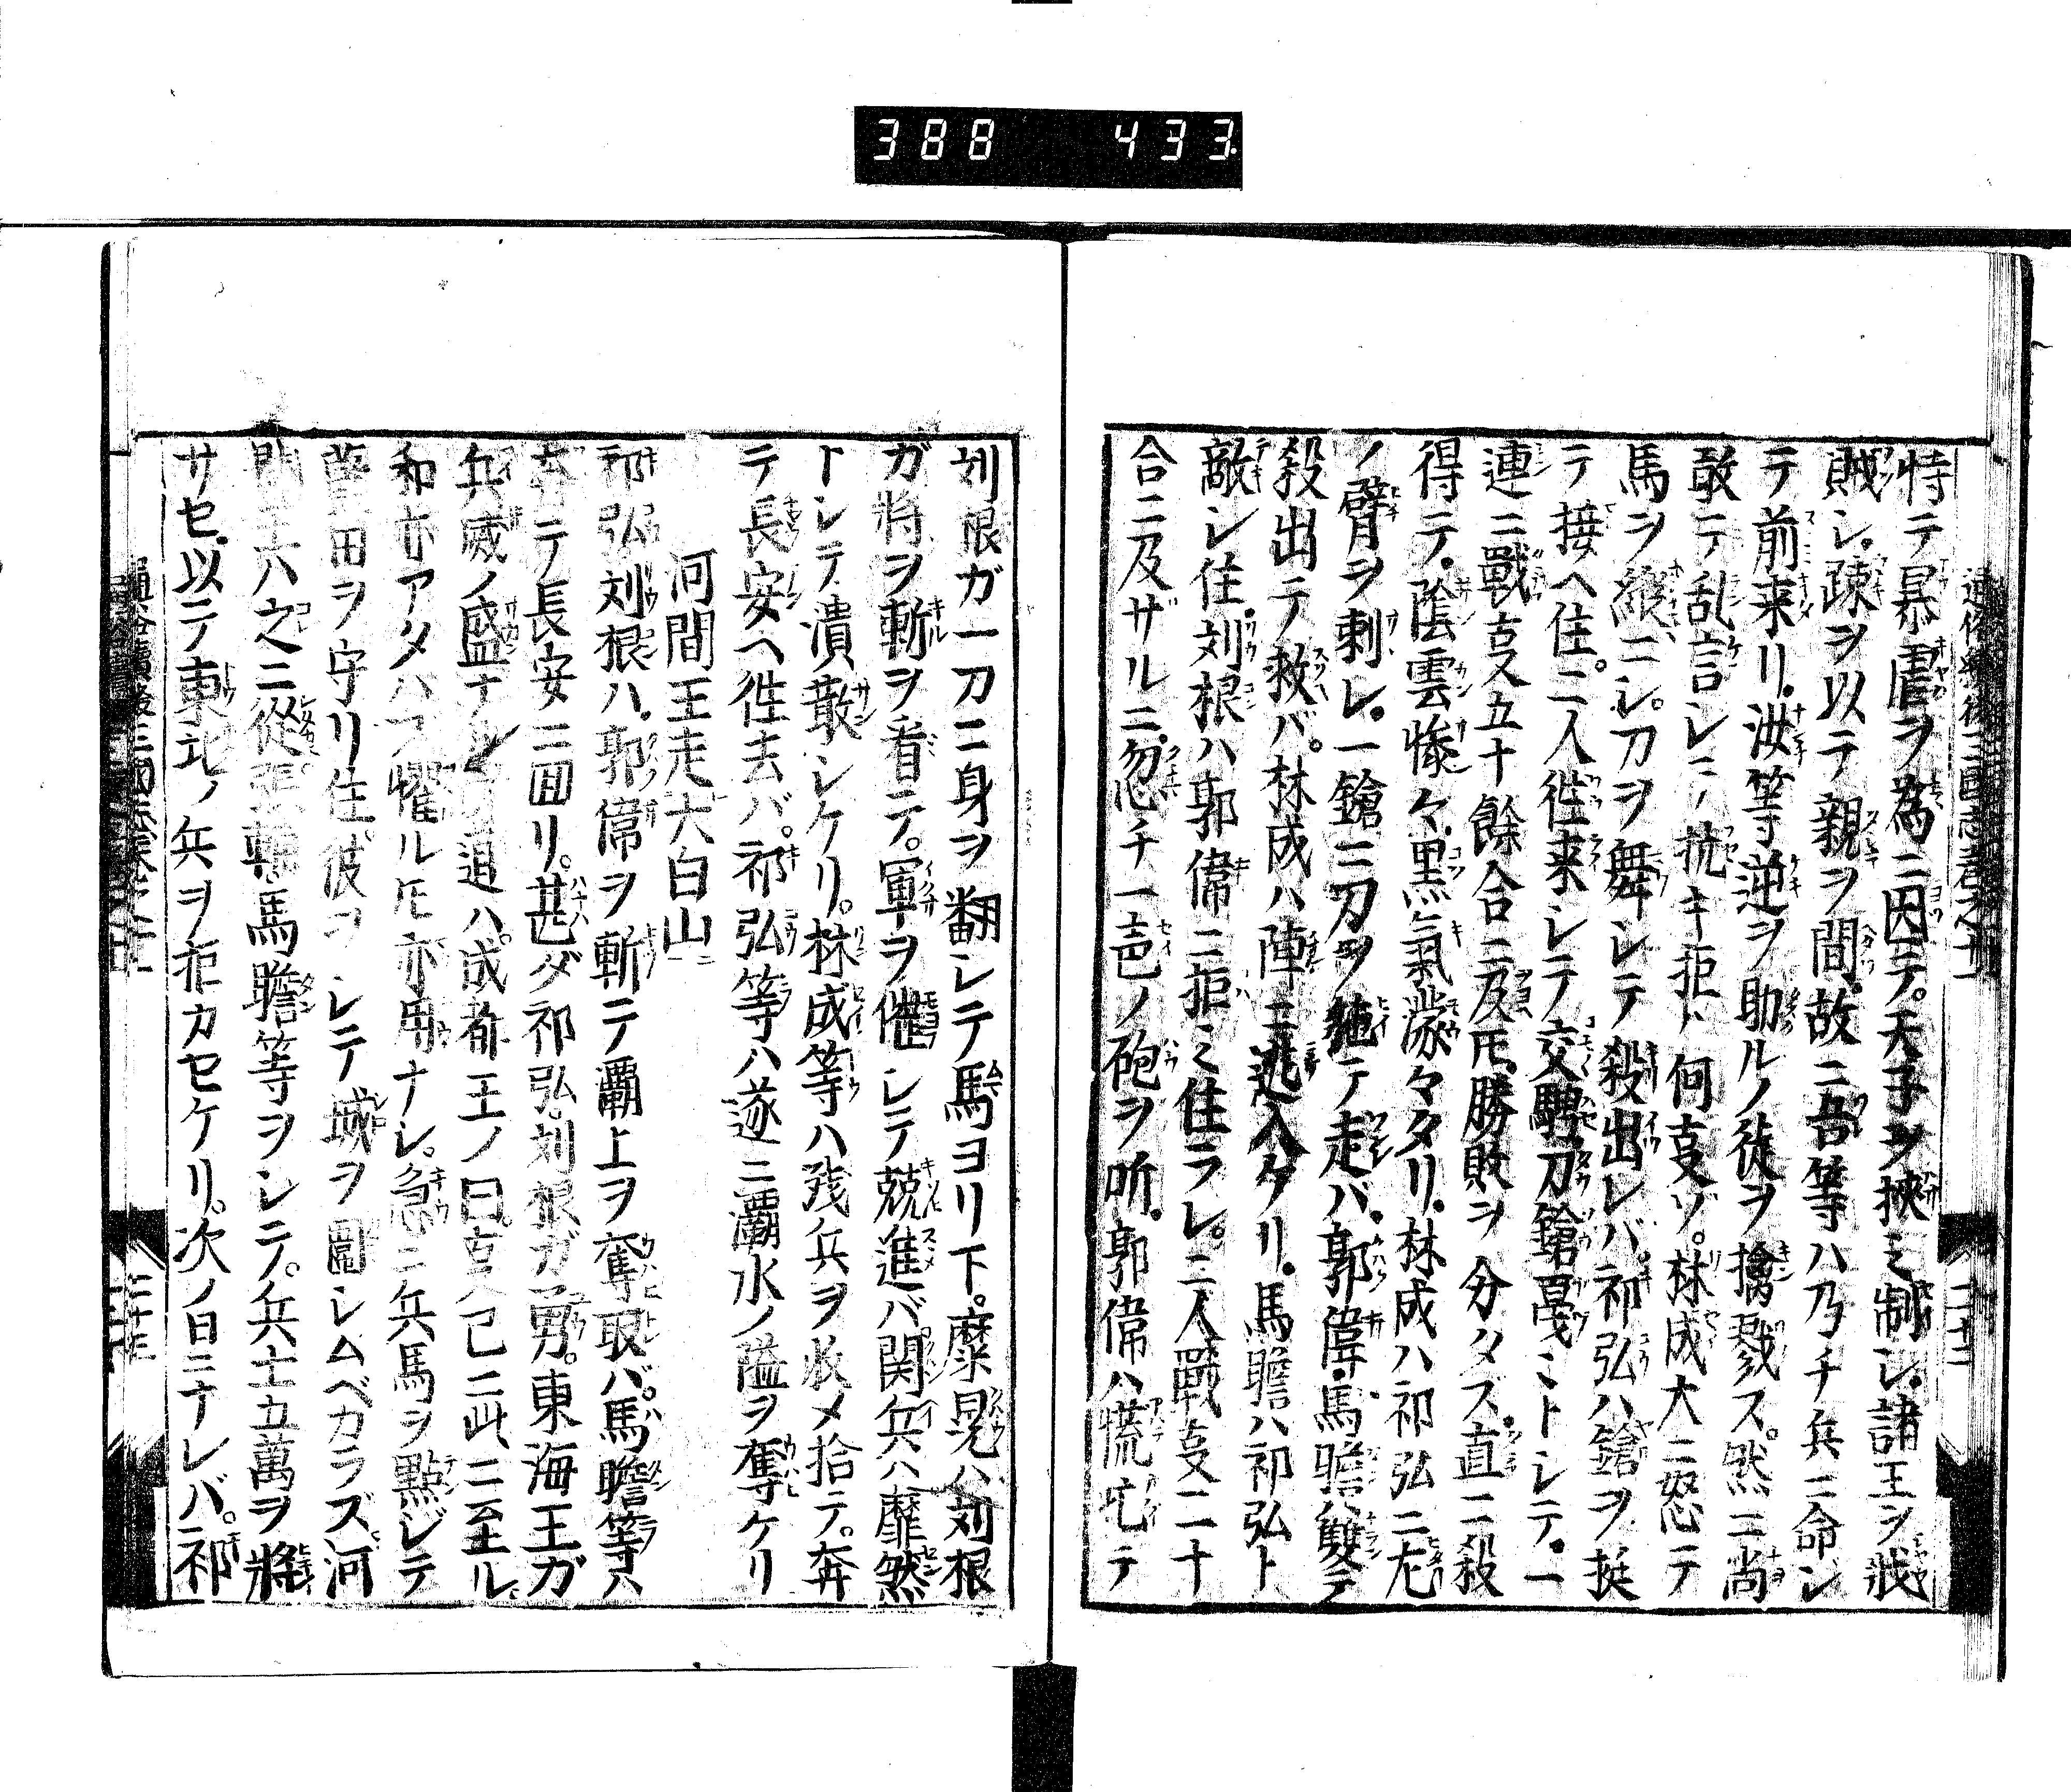 388 433
恃テ暴虐ヲ為ニ因テ。天子ヲ挾ミ制シ。諸王ヲ戕
賊シ。疎ヲ以テ親ヲ間。故ニ吾等ハ乃チ兵ニ命シ
テ前来リ。汝等逆ヲ助ルノ徒ヲ擒戮ス。然ニ尚
敢テ乱言シニ抗キ拒ト何叓ゾ。林成大ニ怒テ
馬ヲ縱ニシ。刀ヲ舞シテ殺出レバ。祁弘ハ鎗ヲ挺
テ接ヘ住。二人徃来シテ交騁刀鎗戞ミトシテ。一
連ニ戰叓五十餘合ニ及𪜈。勝敗ヲ分タス。直ニ殺
得テ。陰雲惨々。黒氣濛々タリ。林成ハ祁弘ニ左
ノ臂ヲ刺レ。一鎗ニ刀ヲ拖テ走バ。郭偉・馬瞻ハ雙テ
殺出テ救バ。林成ハ陣ニ逃入タリ。馬瞻ハ祁弘ト
敵シ住。刘根ハ郭偉ニ拒ミ住ラレ。二人戰叓二十
合ニ及ザルニ。忽チ一声ノ砲ヲ听。郭偉ハ慌忙テ
刘根ガ一刀ニ身ヲ翻シテ馬ヨリ下。糜晃ハ刘根
ガ將ヲ斬ヲ看テ。軍ヲ催シテ兢進バ関兵ハ靡然
トシテ潰散シケリ。林成等ハ残兵ヲ收メ拾テ。奔
テ長安ヘ徃去バ。祁弘等ハ遂ニ灞水ノ隘ヲ奪ケリ
河間王走大白山
祁弘刘根ハ。郭偉ヲ斬テ灞上ヲ奪取バ。馬瞻等ハ
奔テ長安ニ囬リ。甚ダ祁弘・刘根ガ勇。東海王ガ
兵威ノ盛ナルヲ道ハ。成都王ノ曰。叓ハ已ニ此ニ至ル。
和亦アタハズ懼ル𪜈亦用ナシ。急ニ兵馬ヲ點ジテ
藍田ヲ守リ住。彼ヲシテ城ヲ圍シムベカラズ。河
間王ハ之ニ從。張輔・馬瞻等ヲシテ。兵士五萬ヲ將
サセ。以テ東北ノ兵ヲ拒カセケリ。次ノ日ニナレバ。祁